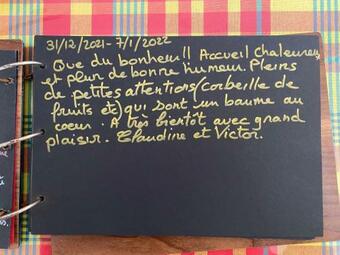 31/12/2021 - 7/1/2022
Que du bonheur!! Accueil chaleureux
et pleur de bonne humeur. Pleins
de petites attentions (corbeille de
fruits et) qui sont un baume au
coeur. A très bientôt avec grand
plaisir. Claudine et Victor.